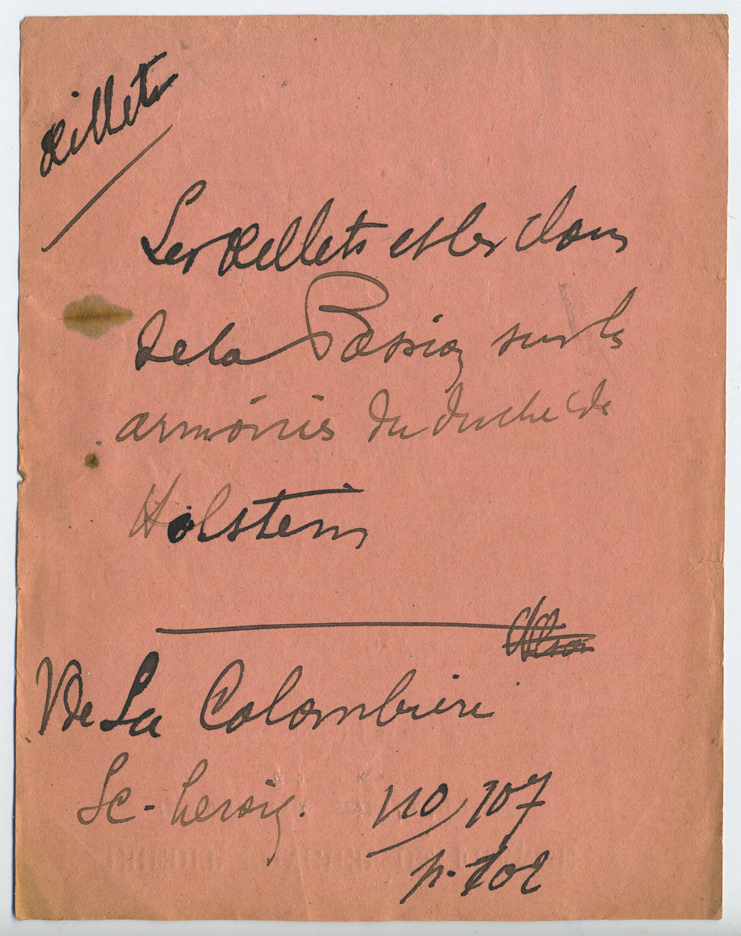 Œillets
Les Œillets et les clous
de la Passion sur les
armoiries du duché de
Holstein
V de La Colombière
Sc. héroïq. no 107
p.